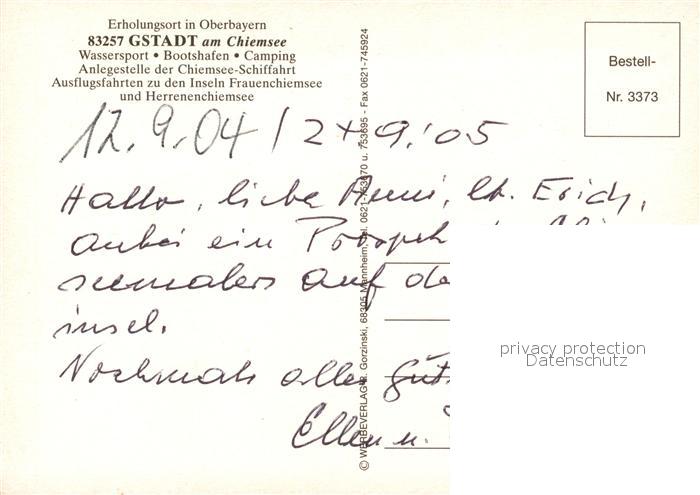 Erholungsort in Oberbayern
83257 GSTADT am Chiemsee
Wassersport • Bootshafen • Camping
Anlegestelle der Chiemsee-Schiffahrt
Ausflugsfahrten zu den Inseln Frauenchiemsee
und Herrenchiemsee
Bestell-
Nr. 3373
12.9.04 / 2+ 9:05
Hallo, liebe Anni, lb. Erich,
anbei ein
seemalers auf de
insel.
Nochmals alles Gut
Ellen u.
© WERBEVERLAG R. Gorzinski, 68305 Mannheim, Tel. 0621-753670 u. 753695 - Fax 0621-745924
privacy protection
Datenschutz